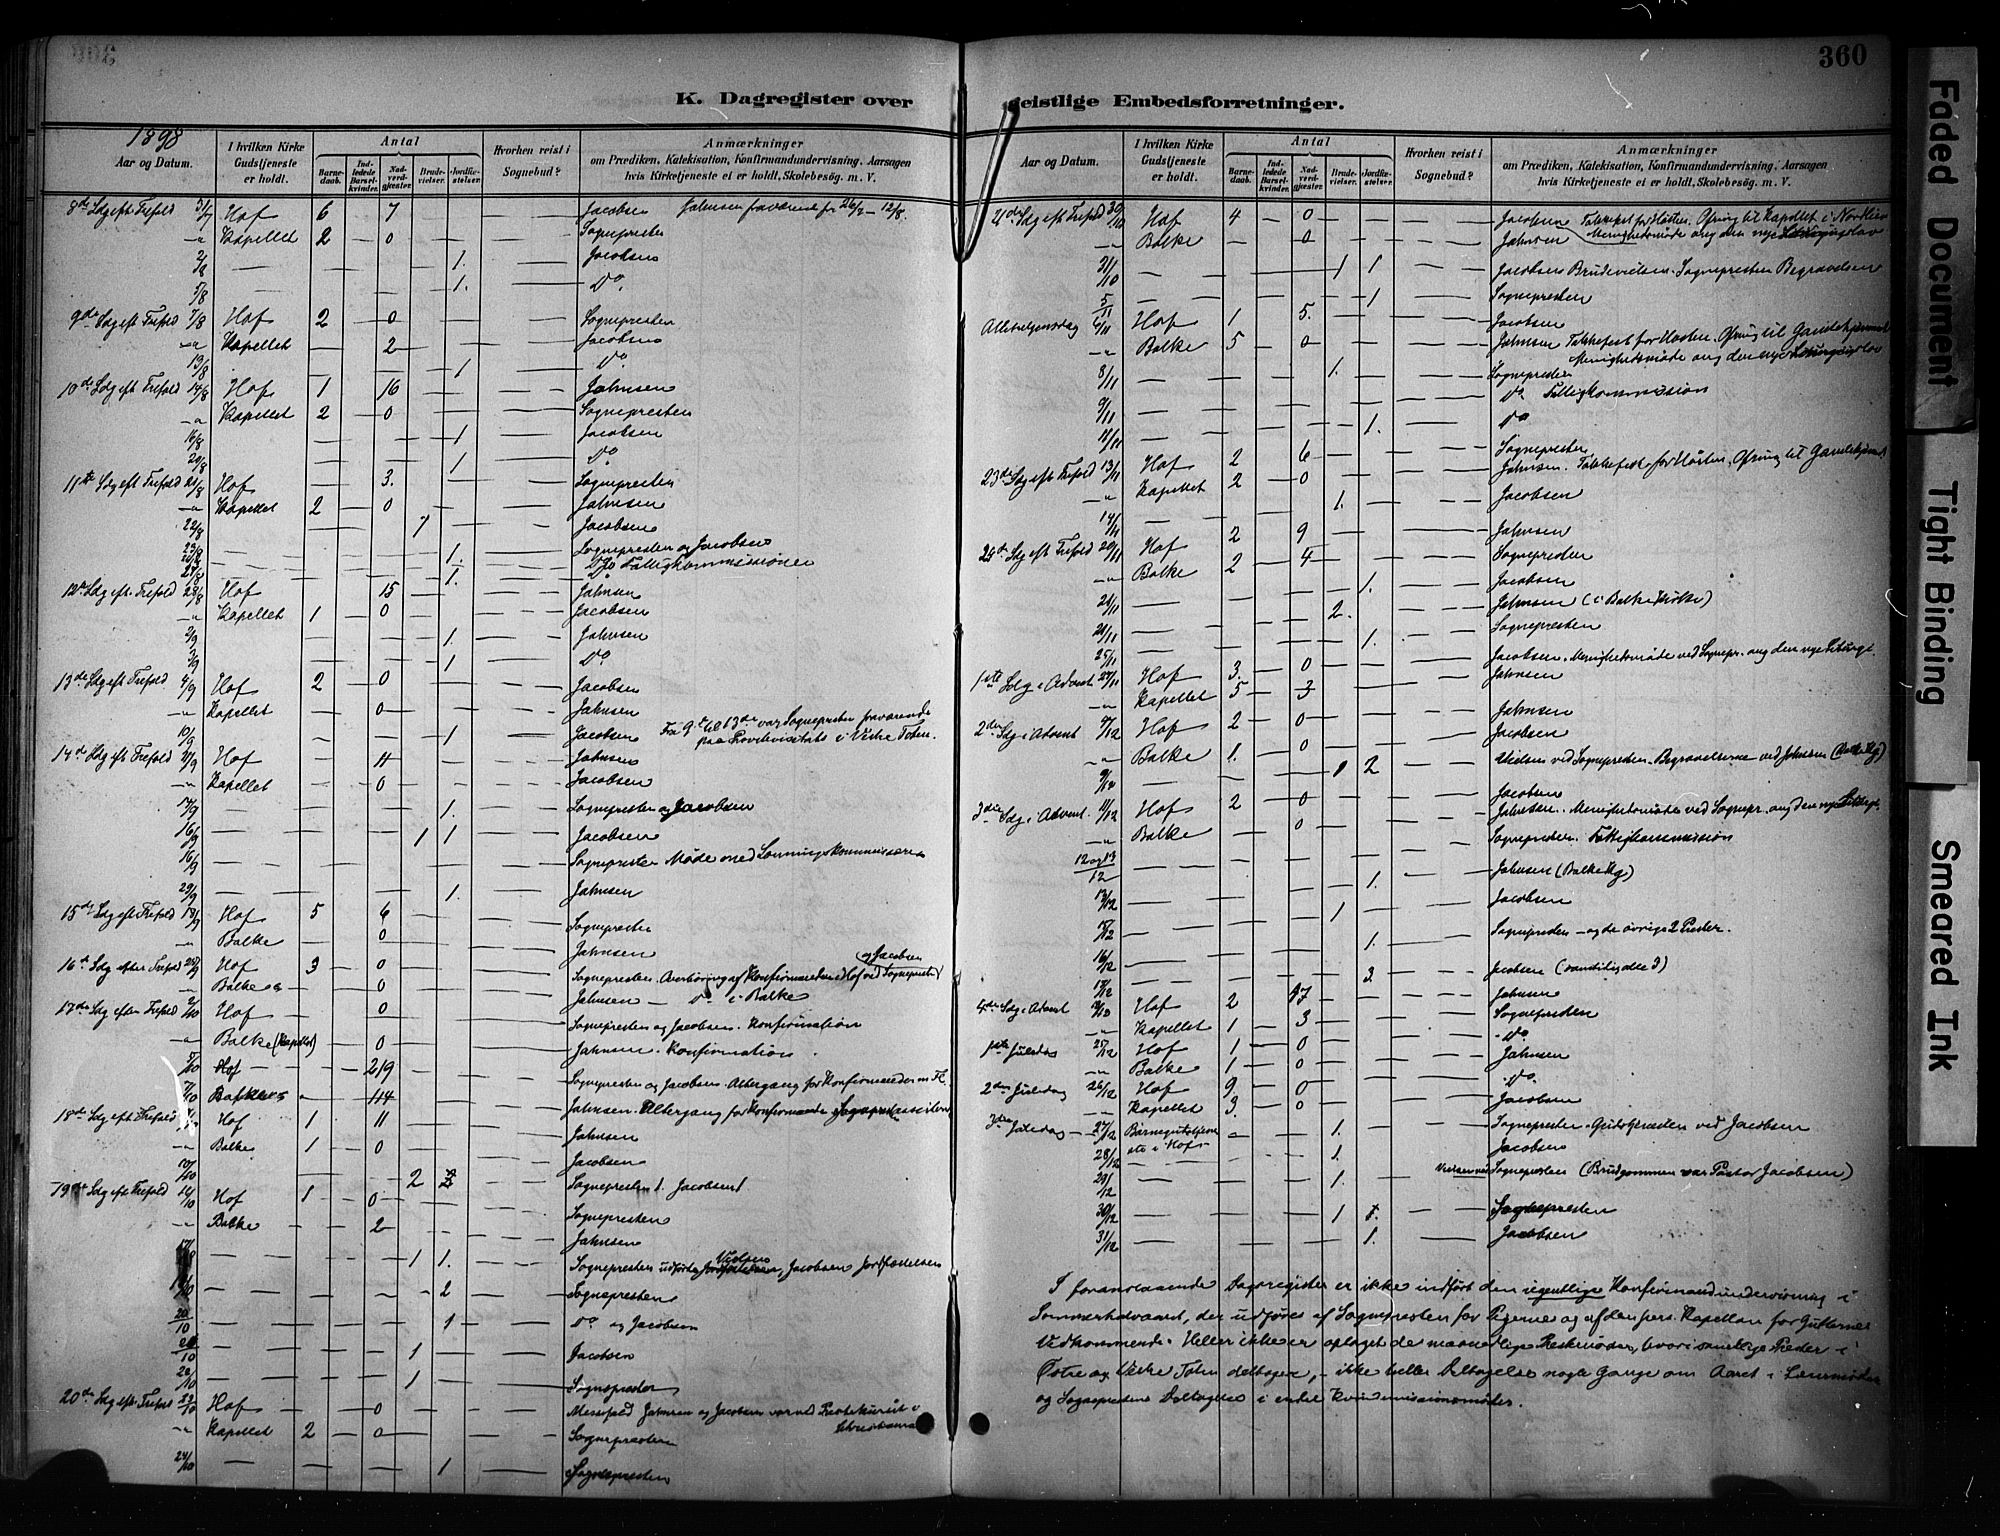 360
K. Dagregister over geistlige Embedsforretninger.
1898
Aar og Datum.
I hvilken Kirke Gudstjeneste er holdt.
Antal
Barnedaab.
Indledede Barselkvinder.
Nadverdgjæster.
Brudevielser.
Jordfæstelser.
Hvorhen reist i Sognebud?
Anmærkninger
om Prædiken, Katekisation, Konfirmandundervisning. Aarsagen
hvis Kirketjeneste ei er holdt, Skolebesøg. m. V.
8de Sdg eft Trefold 31/7 Hof 6 — 7 — — — Jacobsen Jahnsen fraværende fr 26/7 – 12/8.
" Kapellet 2 — 0 — — — Sognepresten
2/8 — — — — 1. — Jacobsen
5/8 — — — — 1. — Do.
9de Sdg eft Trefold 7/8 Hof 2 — 0 — — — Sognepresten
" Kapellet — — 2 — — — Jacobsen
13/8 — — — — 1 — Do
10de Sdg eft Trefold 14/8 Hof 1 — 16 — — — Jahnsen
" Kapellet 2 — 0 — — — Sognepresten
16/8 — — — — 1 — Jacobsen
20/8 — — — — 1 — Do
11te Sdg eft Trefold 21/8 Hof — — 3. — — — Sognepresten
" Kapellet 2 — 0 — — — Jahnsen
22/8 — — — 1 — — Jacobsen
— — — — 1. — Sognepresten og Jacobsen
— — — — 1. — Do Fattigkommissionen
12te Sdg eft. Trefold 28/8 Hof — — 15 — — — Jahnsen
" Kapellet 1 — 0 — — — Jacobsen
2/9 — — — — 1. — Jahnsen
3/9 — — — — 1 — Do
13de Sdg eft Trefold 4/9 Hof 2 — 0 — — — Jacobsen
" Kapellet — — 0 — — — Jahnsen
10/9 — — — — 1 — Jacobsen Fra 9de til 13de var Sognepresten fraværende
paa Provstevisitats i Vestre Toten.
14de Sdg eft Trefold 11/9 Hof — — 11 — — — Jahnsen
" Kapellet — — 0 — — — Jacobsen
— — — — 1. — Sognepresten og Jacobsen
16/9 — — — 1 1 — Jacobsen
16/9 — — — — — — Sognepresten Møde med Lønningskommissionen
— — — — 1. — Jahnsen
15de Sdg eft Trefold 18/9 Hof 5 — 6 — — — Sognepresten
" Balke — — 0 — — — Jahnsen
16de Sdg efter Trefold 25/9 Hof 3 — 0 — — — Sognepresten. Overhøring af Konfirmander i Hof ved Sognepresten og Jacobsen
" Balke — — 0 — — — Jahnsen — Do i Balke
17de Sdg efter Trefold 2/10 Hof — — 0 — — — Sognepresten og Jacobsen. Konfirmation
" Balke (Kapellet) — — 0 — — — Jahnsen. Konfirmation.
5/10 Hof — — 219 — — — Sognepresten og Jacobsen. Altergang for Konfirmander m Fl.
7/10 — — 114 — — — Jahnsen. Altergang for Konfirmander
18de Sdg eft Trefold Hof 1 — 11 — — — Jahnsen
" Balke 1 — 0 — — — Jacobsen
— — — 2 — Sognepresten
19de Sdg eft Trefold Hof 1 — 0 — — — Sognepresten
" Balke — — 2 — — — Jahnsen
— — — 1 1. — Sognepresten udførte Vielsen, Jacobsen Jordfæstelsen
— — — — 2 — Sognepresten
20/10 — — — — 1 — Do og Jacobsen
— — — 1 — — Jacobsen
— — — 1 — — Sognepresten
20de Sdg eft Trefold 23/10 Hof — — 0 — — — Messefald Jahnsen og Jacobsen
" Kapellet 2 — 0 — — — Sognepresten
24/10 — — — — 1 — Sognepresten
Aar og Datum.
I hvilken Kirke Gudstjeneste er holdt.
Antal
Barnedaab.
Indledede Barselkvinder.
Nadverdgjæster.
Brudevielser.
Jordfæstelser.
Hvorhen reist i Sognebud?
Anmærkninger
om Prædiken, Katekisation, Konfirmandundervisning. Aarsagen
hvis Kirketjeneste ei er holdt, Skolebesøg. m. V.
21de Sdg eft Trefold 30/10 Hof 4 — 0 — — — Jacobsen Takkefest for Høsten. Ofring til Kapellet i Nordlien
" Balke — — 0 — — — Jahnsen Menighedsmøde ang den nye
31/10 — — — 1 1 — Jacobsen Brudevielsen. Sognepresten Begravelsen
5/11 — — — — 1 — Sognepresten
Allehelgensdag 6/11 Hof 1 — 5. — — — Jacobsen
" Balke 5 — 0 — — — Jahnsen Takkefest for Høsten. Ofring til
Menighedsmøde ang den nye
8/11 — — — 1. — — Sognepresten
9/11 — — — — — — Do Fattigkommission
11/11 — — — — 1. — Do
23de Sdg eft Trefold 13/11 Hof 2 — 6 — — — Sognepresten
" Kapellet 2 — 0 — — — Jahnsen. Takkefest for Høsten. Ofring til
14/11 — — — 1. — — Jacobsen
24de Sdg eft Trefold 20/11 Hof 2 — 9 — — — Jahnsen
" Balke 2 — 4 — — — Sognepresten
21/11 — — — — 1. — Jacobsen
— — — 2. — — Jahnsen (i Balke Kirke)
25/11 — — — — 1. — Sognepresten
1ste Sdg i Advent 27/11 Hof 3. — 0 — — — Jacobsen. Menighedsmøde ved Sognepr. ang den nye Liturgi.
" Kapellet 5 — 3 — — — Jahnsen
2den Sdg i Advent 4/12 Hof 2 — 0 — — — Jahnsen
" Balke 1. — 0 — — — Jacobsen
9/12 — — — 1 2 — Vielsen ved Sognepresten. Begravelserne ved Jahnsen (Balke Kg)
3die Sdg i Advent 11/12 Hof 2 — 0 — — — Jacobsen
" Balke — — 0 — — — Jahnsen. Menighedsmøde ved Sognepr. ang den nye Liturgi.
12 og 13/12 — — — — — — Sognepresten. Fattigkommission
13/12 — — — — 1. — Jahnsen (Balke Kg)
— — — 1 — — Jacobsen
16/12 — — — — 1. — Sognepresten — og de øvrige 2 Prester.
— — — — 3. — Jacobsen (samtidig alle 3)
4de Sdg i Advent 18/12 Hof 2 — 17 — — — Jahnsen
" Kapellet 1 — 3 — — — Sognepresten
1ste Juledag 25/12 Hof 1 — 0 — — — Do
" Balke 1 — 0 — — — Jahnsen
2den Juledag 26/12 Hof 9 — 0 — — — Do.
" Kapellet 3. — 0 — — — Jacobsen
3die Juledag 27/12 Børnegudstjeneste i Hof — — — 1. — — Sognepresten. Gudstjenesten ved Jacobsen
28/12 — — — 1. — — Jacobsen
29/12 — — — 1. — — Vielsen ved Sognepresten (Brudgommen var Pastor Jacobsen)
30/12 — — — 1 1. — Sognepresten
31/12 — — — — 1. — Jacobsen
I foranstaaende Dagsregister er ikke indført den egentlige Konfirmandundervisning i
Sommerhalvaaret, der udføres af Sognepresten for Pigerne og af den pers. Kapellan for Gutternes
Vedkommende. Heller ikke er optaget de maanedlige Prestemøder, hvori samtlige Prester i
Østre og Vestre Toten deltager, – ikke heller Deltagelse nogle Gange om Aaret i Lærermøder
og Sognepresten Deltagelse i endel Kredsmissionsmøder.
Faded Document
Tight Binding
Smeared Ink